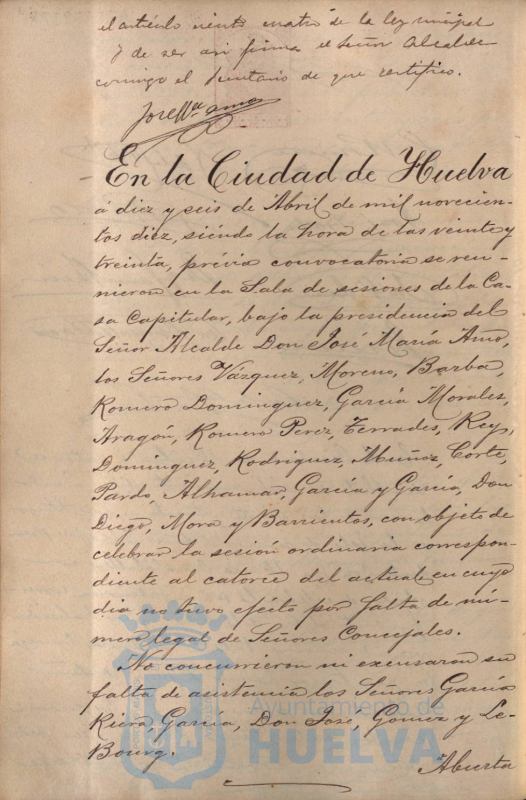 el artículo ciento cuatro de la ley municipal
y de ser así firma el Señor Alcalde
conmigo el Secretario de que certifico.
José Mª Amo
En la Ciudad de Huelva
á diez y seis de Abril de mil novecien-
tos diez, siéndo la hora de las veinte y
treinta, prévia convocatoria se reu-
nieron en la Sala de sesiones de la Ca-
sa Capitular, bajo la presidencia del
Señor Alcalde Don José María Amo,
los Señores Vázquez, Moreno, Barba,
Romero Dominguez, García Morales,
Aragón, Romero Perez, Terrades, Rey,
Dominguez, Rodriguez, Muñoz, Corte,
Pardo, Alhamar, García y García, Don
Diego, Mora y Barrientos, con objeto de
celebrar la sesión ordinaria correspon-
diente al catorce del actual en cuyo
dia no tuvo efécto por falta de nú-
mero legal de Señores Concejales.
No concurrieron ni excusaron su
falta de asistencia los Señores García
Riera, García, Don José, Gómez y Le-
Bourg.
Abierta
Ayuntamiento de
HUELVA